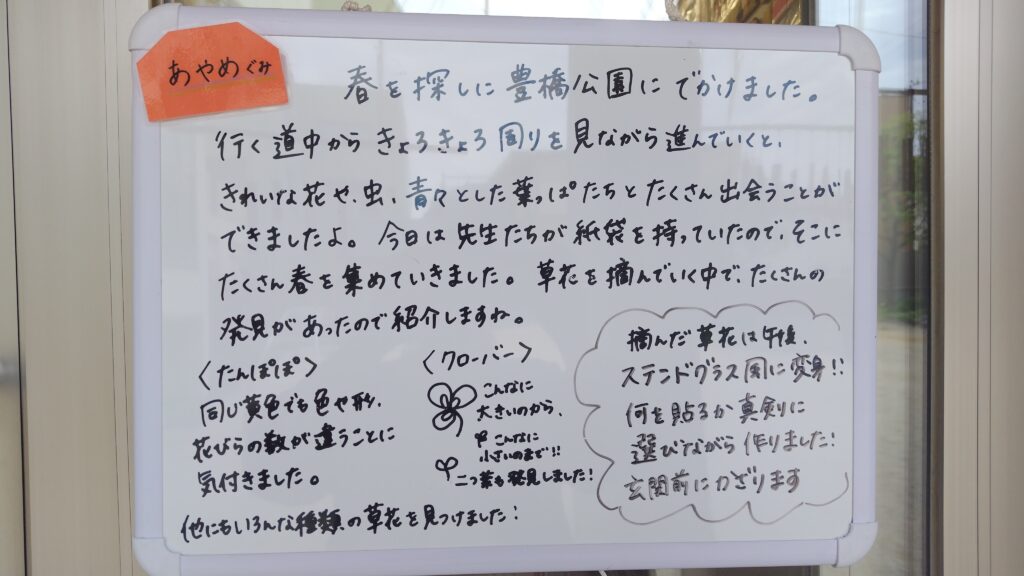 あやめぐみ
春を探しに豊橋公園にでかけました。
行く道中からきょろきょろ周りを見ながら進んでいくと、
きれいな花や、虫、青々とした葉っぱたちとたくさん出会うことが
できましたよ。今日は先生たちが紙袋を持っていたので、そこに
たくさん春を集めていきました。草花を摘んでいく中で、たくさんの
発見があったので紹介しますね。
〈たんぽぽ〉
同じ黄色でも色や形、
花びらの数が違うことに
気付きました。
〈クローバー〉
こんなに
大きいのから、
こんなに
小さいのまで!!
二つ葉も発見しました!
摘んだ草花は午後、
ステンドグラス風に変身!!
何を貼るか真剣に
選びながら作りました!
玄関前にかざります
他にもいろんな種類の草花を見つけました!